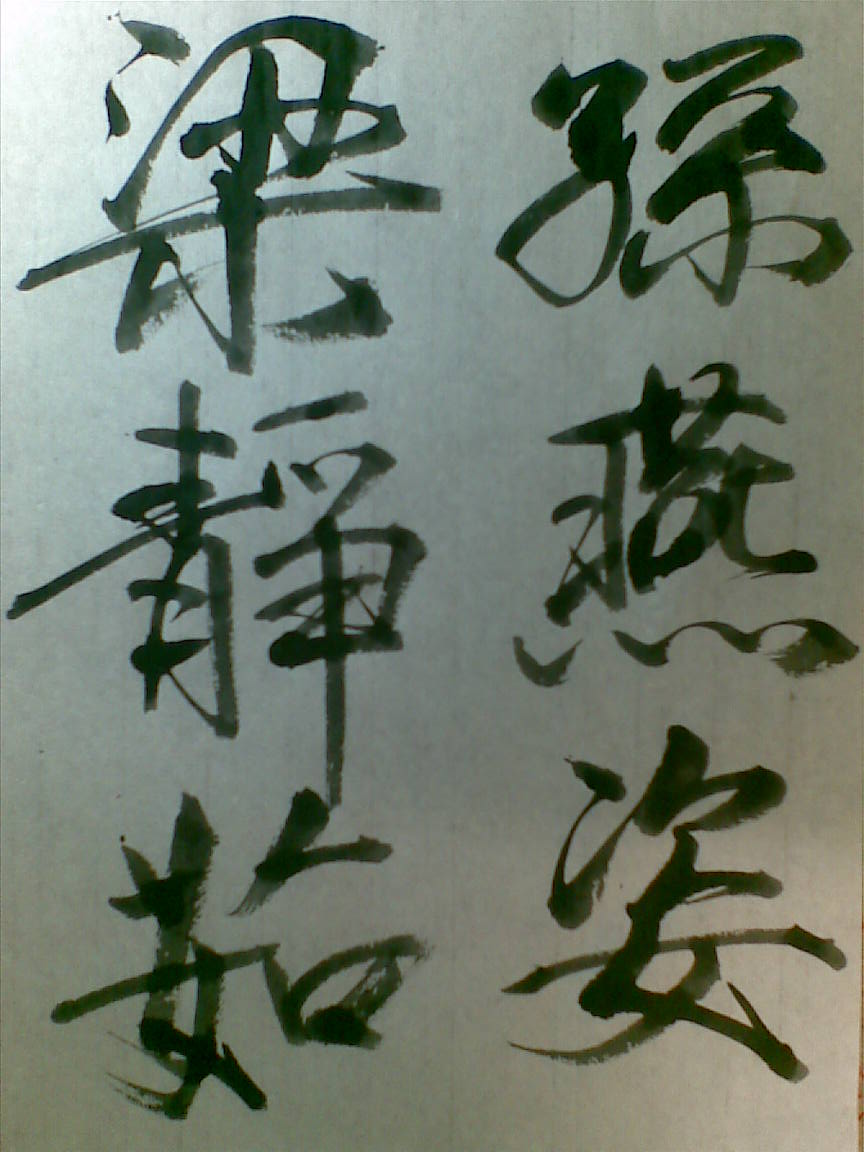 孫燕姿
梁靜茹